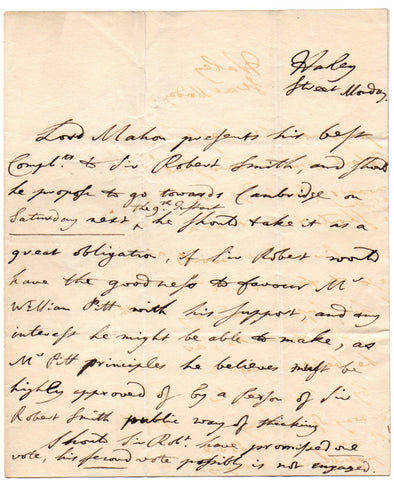 Harley
Street Monday.
Lord Mahon presents his best
Compl.ts to Sir Robert Smith, and should
he propose to go towards Cambridge on
Saturday next, the 9th Instant he should take it as a
great obligation, if Sir Robert would
have the goodness to favour Mr
William Pitt with his support, and any
interest he might be able to make, as
Mr Pitt principles he believes must be
highly approved of by a Person of Sir
Robert Smith public way of thinking
Should Sir Robt. have promised one
vote, his second vote possibly is not engaged.